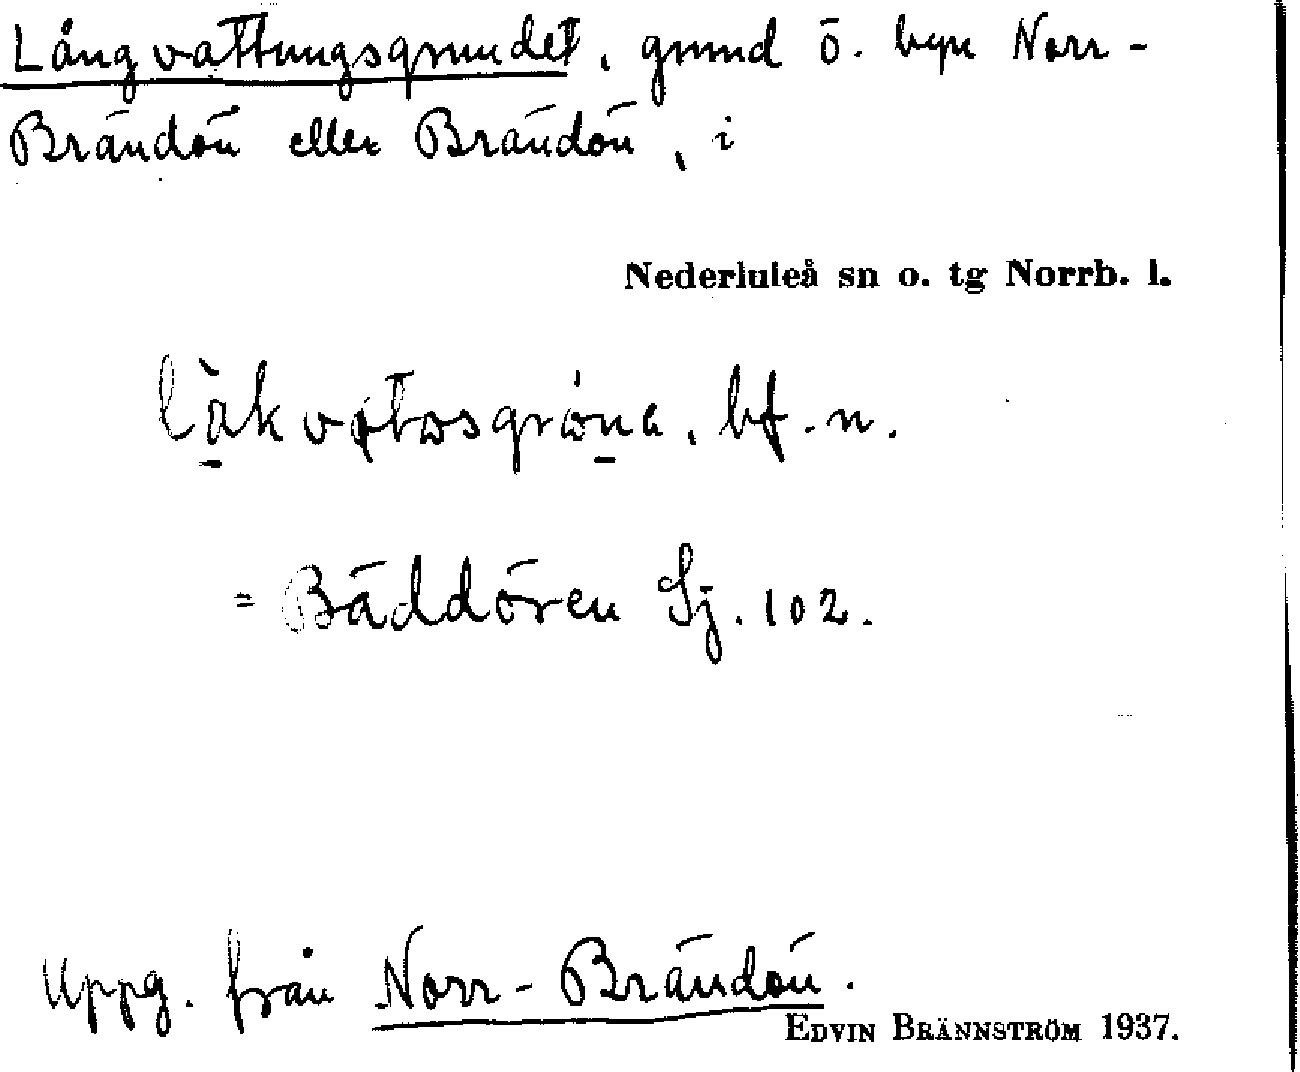 Långvattungsgrundet, grund ö. byn Norr-
Brändön eller Brändön, i
Nederluleå sn o. tg Norrb. l.
bf. n.
= Bäddören Sj. 102.
Uppg. från Norr-Brändön.
EDVIN BRÄNNSTRÖM 1937.